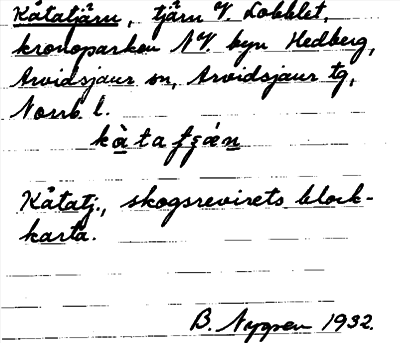 Kåtatjärn, tjärn V. Lobblet,
kronoparken NV. byn Hedberg,
Arvidsjaur sn, Arvidsjaur tg,
Norrb l.
kȧ̀ta
Kåtatj., skogsrevirets block-
karta.
B. Nygren 1932.